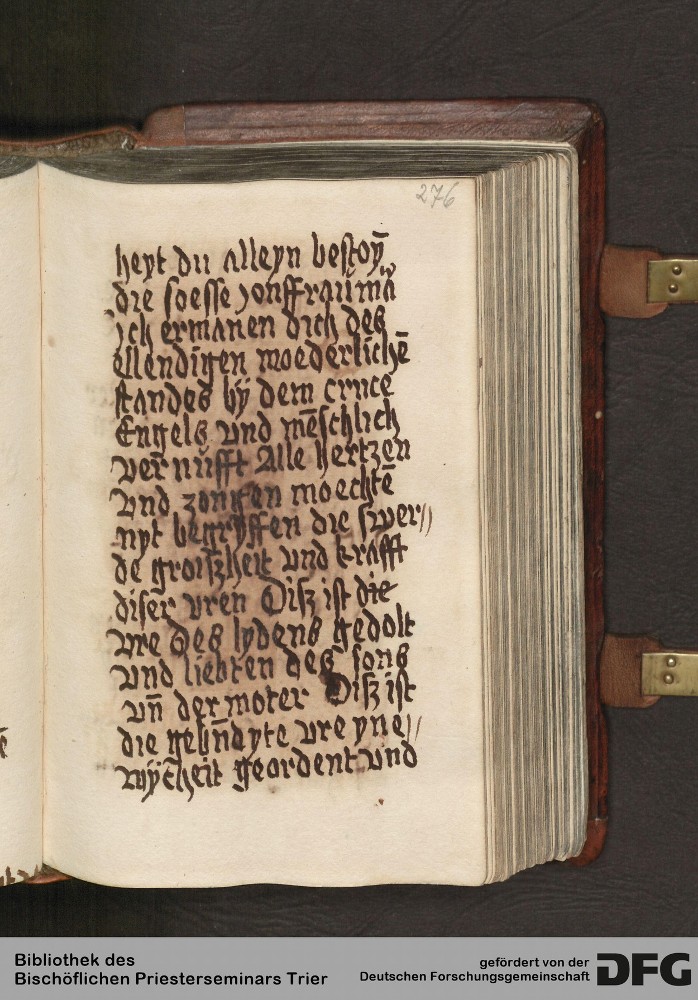 276
heyt du alleyn bestoy̅
die soesse jonffraumā
jch ermanen dich des
ellendigen moederliche̅
standes bÿ dem cruce
Engels vnd me̅schlich
ver̅nufft Alle hertzen
vnd zongen moechte̅
nyt begryffen die swer//
de groiszheit vnd krafft
diser vren Disz ist die
vre des lydens gedolt
vnd liebten des sons
vn̅ der moter Disz ist
die vre yne//
geordent vnd
Bibliothek des
Bischöflichen Priesterseminars Trier
gefördert von der
Deutschen Forschungsgemeinschaft
DFG